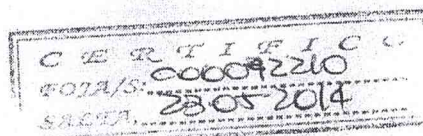 CERTIFICO
FOJA/S: 000092210
SALTA, 28.05-2014